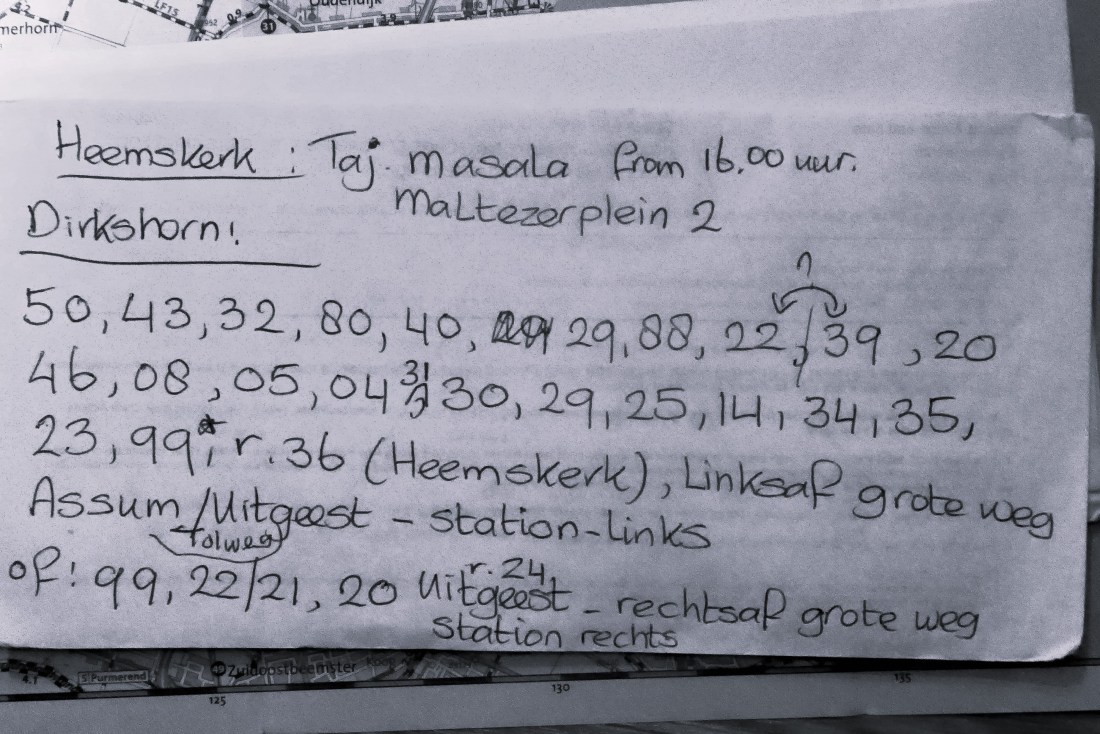 merhorn
LF15
Oudendijk
31
Heemskerk : Taj. masala from 16.00 uur.
Maltezerplein 2
Dirkshorn!
?
50, 43, 32, 80, 40, 29, 88, 22, / 39, 20
46, 08, 05, 04, 31, 30, 29, 25, 14, 34, 35,
23, 99, r. 36 (Heemskerk), Linksaf grote weg
Assum/Uitgeest - station-links
Tolweg
of: 99, 22/21, 20 r. 24, Uitgeest - rechtsaf grote weg
station rechts
4.1
S Purmerend
Zuidoostbeemster
125
130
135